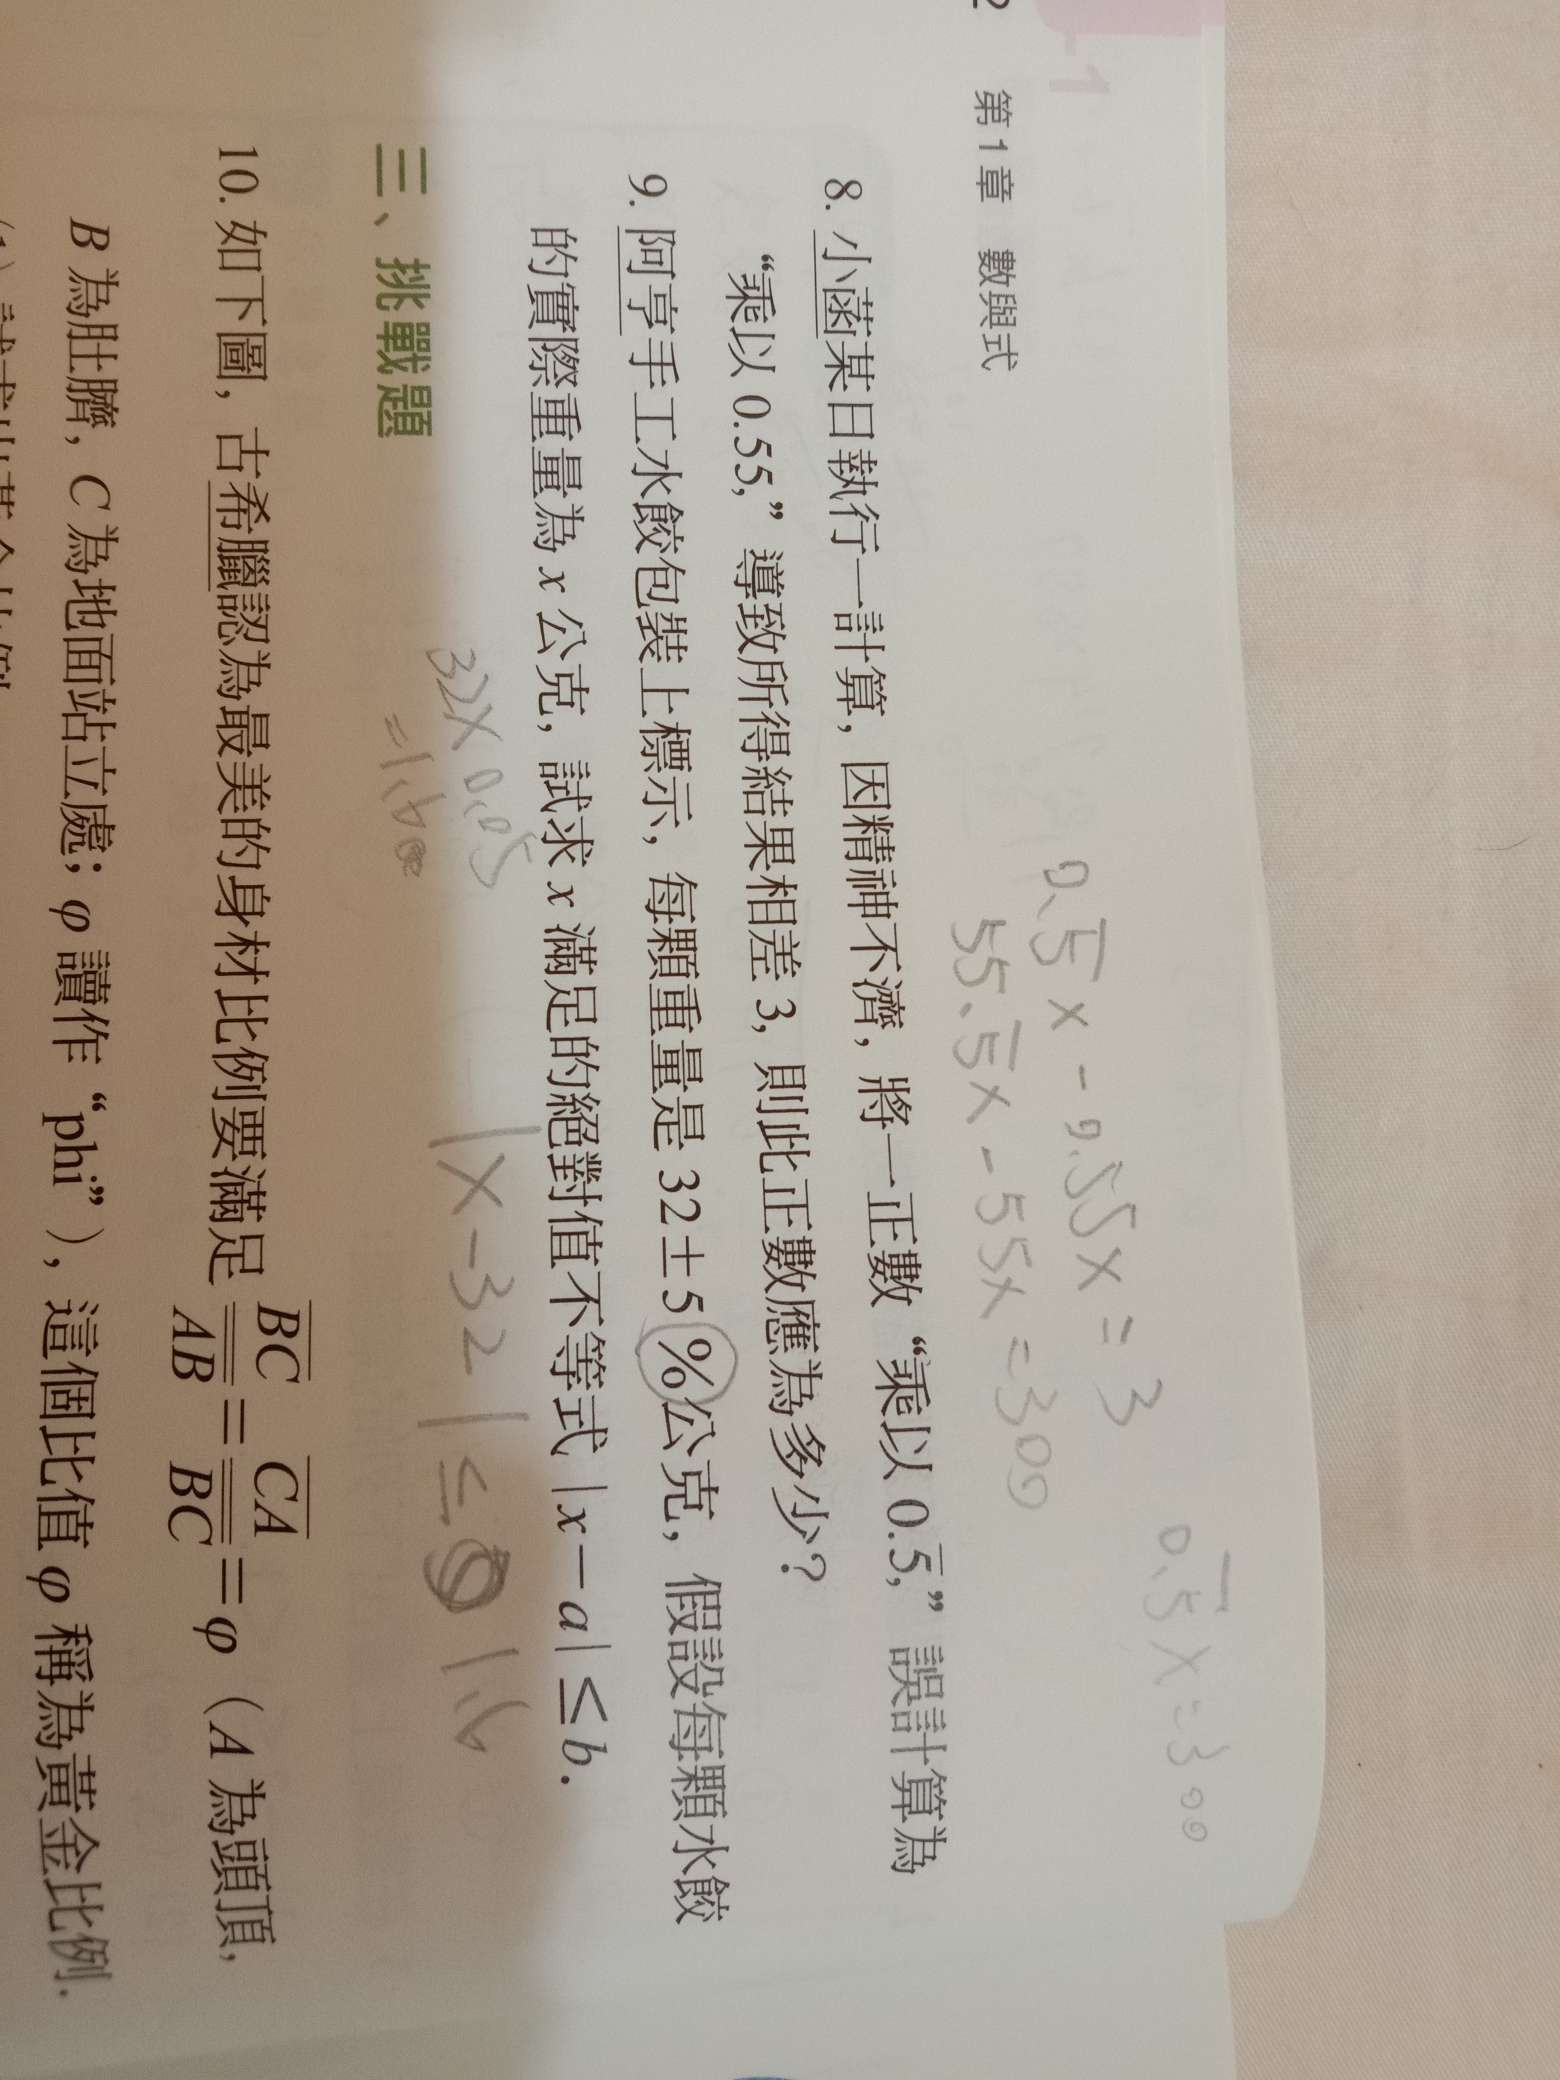 2 第1章 數與式
0.5̅x - 0.55x = 3
55.5̅x - 55x = 300
0.5̅x = 300
8. 小菡某日執行一計算，因精神不濟，將一正數“乘以 0.5̅，”誤計算為
“乘以 0.55，”導致所得結果相差 3，則此正數應為多少？
9. 阿亨手工水餃包裝上標示，每顆重量是 32±5%公克，假設每顆水餃
的實際重量為 x 公克，試求 x 滿足的絕對值不等式 |x－a|≤b.
32×0.05
=1.60
|x-32|≤ 1.6
三、挑戰題
10. 如下圖，古希臘認為最美的身材比例要滿足 B̅C̅/A̅B̅＝C̅A̅/B̅C̅＝φ（A 為頭頂，
B 為肚臍，C 為地面站立處；φ 讀作“phi”），這個比值 φ 稱為黃金比例.